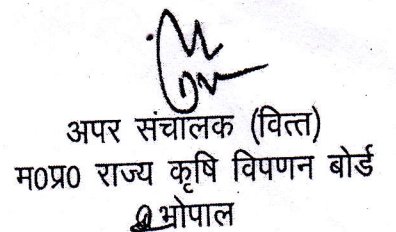 अपर संचालक (वित्त)
म0प्र0 राज्य कृषि विपणन बोर्ड
भोपाल